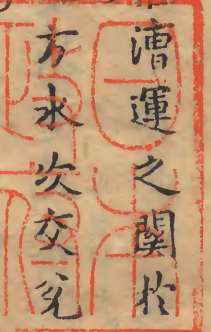 漕運之関於
方永次交兑